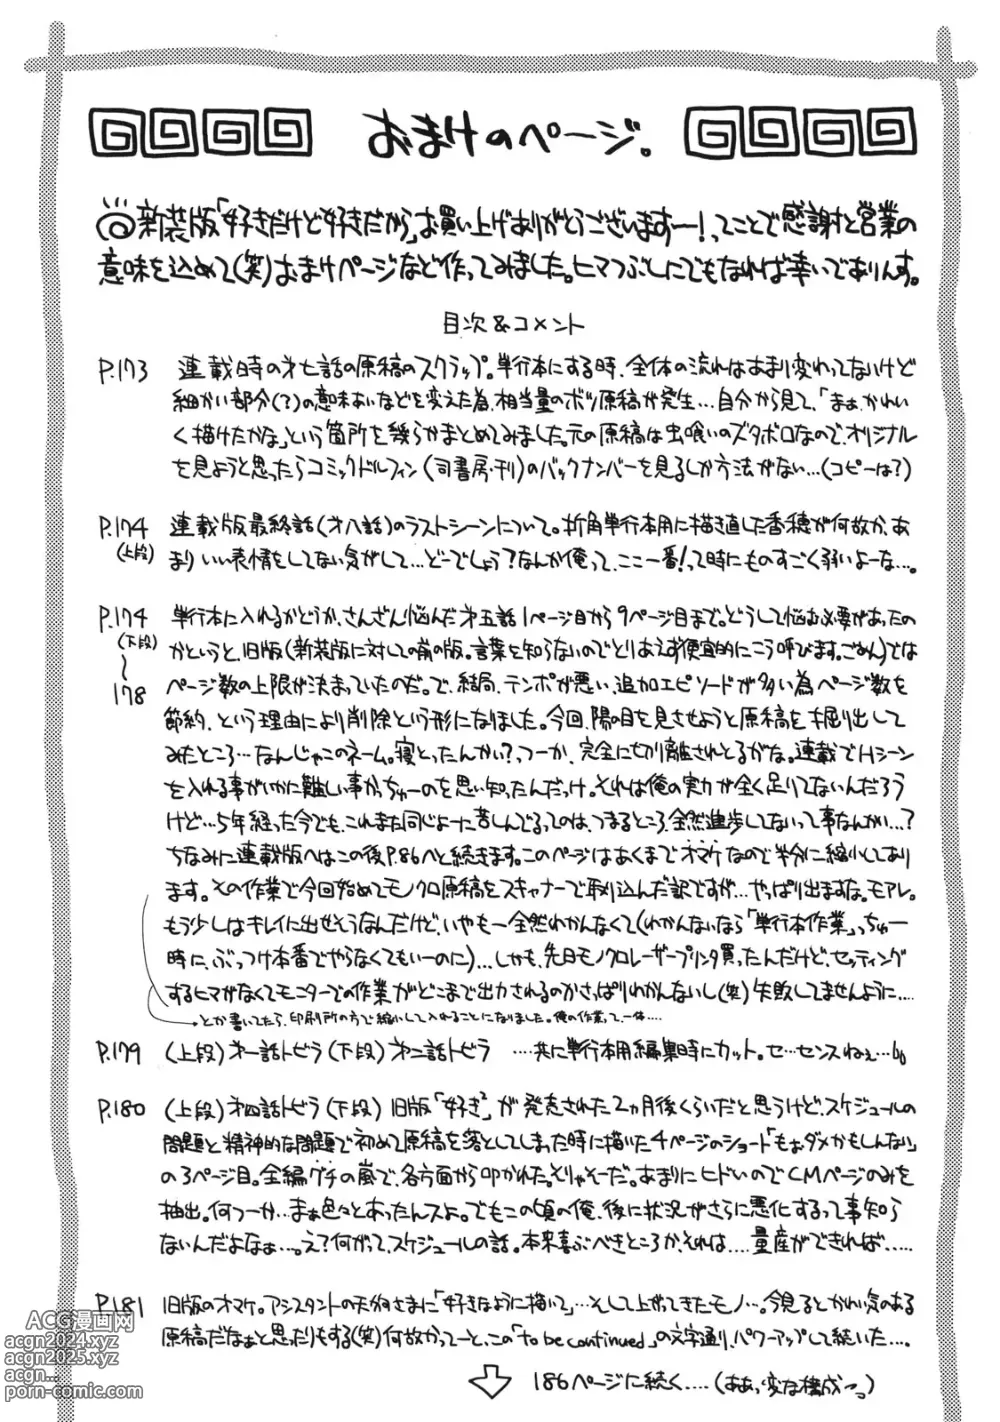 おまけのページ。
新装版「好きだけど好きだから」お買い上げありがとうございますー!ってことで感謝と営業の
意味を込めて(笑)おまけページなど作ってみました。ヒマつぶしにでもなれば幸いでありんす。
目次&コメント
P.173 連載時の才七話の原稿のスクラップ。単行本にする時、全体の流れはあまり変わってないけど
細かい部分(?)の意味あいなどを変えた為、相当量のボツ原稿が発生…自分から見て、「まぁ、かわい
く描けたかな」という箇所を幾らかまとめてみました。元の原稿は虫喰いのズタボロなので、オリジナル
を見ようと思ったらコミックドルフィン(司書房・刊)のバックナンバーを見るしか方法がない…(コピーは?)
P.174 連載版最終話(才八話)のラストシーンについて。折角単行本用に描き直した香穂が何故か、あ
(上段) まりいい表情をしてない気がして…どーでしょう?なんか俺って、ここ一番!って時にものすごく弱いよーな…。
P.174 単行本に入れるかどうか、さんざん悩んだ才五話1ページ目から9ページ目まで。どうして悩む必要があったの
(下段) かというと、旧版(新装版に対しての前の版。言葉を知らないのでとりあえず便宜的にこう呼びます。ごめん)では
〜
178 ページ数の上限が決まっていたのだ。で、結局、テンポが悪い、追加エピソードが多い為ページ数を
節約、という理由により削除という形になりました。今回、陽の目を見させようと原稿を掘り出して
みたところ…なんじゃこのネーム。寝とったんかい?つーか、完全に切り離されとるがな。連載でHシーン
を入れる事がいかに難しい事かっちゅーのを思い知ったんだっけ。それは俺の実力が全く足りてないんだろう
けど…5年経った今でも、これまた同じよーに苦しんでるってのは、つまるところ、全然進歩してないって事なんかい…?
ちなみに連載版へはこの後P.86へと続きます。このページはあくまでオマケなので半分に縮小してあり
ます。その作業で今回始めてモノクロ原稿をスキャナーで取り込んだ訳ですが…やっぱり出ますな。モアレ。
もう少しはキレイに出せそうなんだけど、いやもー全然わかんなくて(わかんないなら「単行本作業」っちゅー
時に、ぶっつけ本番でやらなくてもいーのに)…しかも、先日モノクロレーザープリンタ買ったんだけど、セッティング
するヒマがなくてモニターでの作業がどこまで出力されるのかさっぱりわかんないし(笑)失敗してませんように….
とか書いてたら、印刷所の方で縮小して入れることになりました。俺の作業って一体….
P.179 (上段)才一話トビラ(下段)才二話トビラ ….共に単行本用編集時にカット。セ…センスねぇ…
P.180 (上段)才四話トビラ(下段)旧版「好き²」が発売された2ヵ月後くらいだと思うけど、スケジュールの
問題と精神的な問題で初めて原稿を落としてしまった時に描いた4ページのショート「もぉダメかもしんない」
の3ページ目。全編グチの嵐で、各方面から叩かれた。そりゃそーだ。あまりにヒドいのでCMページのみを
抽出。何つーか…まぁ色々とあったんスよ。でもこの頃の俺、後に状況がさらに悪化するって事知ら
ないんだよなぁ…。え?何がって、スケジュールの話。本来喜ぶべきところか、それは….量産ができれば…..
P.181 旧版のオマケ。アシスタントの天狗さまに「好きなように描いて」…そして上がってきたモノ…。今見るとかわい気のある
原稿だなぁと思ったりもする(笑)何故かってーと、この「to be continued」の文字通り、パワーアップして続いた….
186ページに続く….(ああっ変な構成〜っ)
ACG漫画网
acgn2024.xyz
acgn2025.xyz
acgn...
porn-comic.com